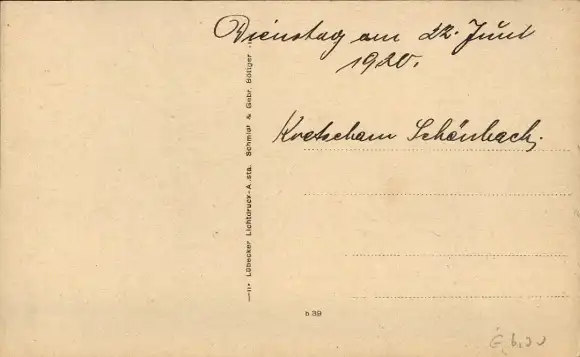 Dienstag am 22. Juni
1920.
Kretscham Schönbach.
Lübecker Lichtdruck-A sta. Schmidt & Gebr. Böttger
b 39